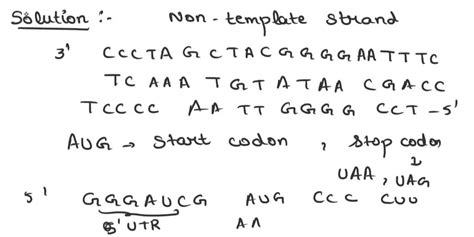 Solution :- Non-template strand
3' CCCTA GCTACGGGGAATTTC
TC AAA TGTATAA CGACC
TCCCC AA TT GGGG CCT-5'
AUG → Start codon , Stop codon
2
UAA, UAG
5' GGGAUCG AUG CCC CUU
5' UTR AA